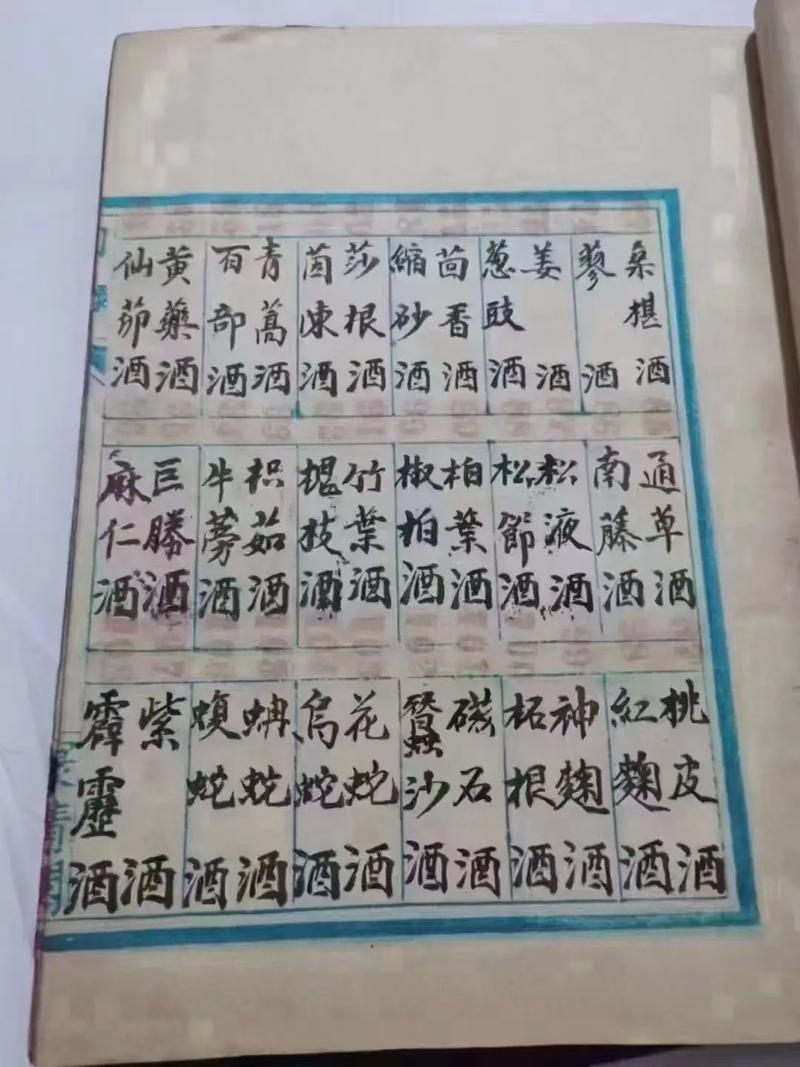 桑椹酒
蓼酒
姜酒
葱豉酒
茴香酒
縮砂酒
莎根酒
茵陳酒
青蒿酒
百部酒
黄藥酒
仙茆酒
通草酒
南藤酒
松液酒
松節酒
柏葉酒
椒柏酒
竹葉酒
槐枝酒
枳茹酒
牛蒡酒
巨勝酒
麻仁酒
桃皮酒
紅麹酒
神麹酒
柘根酒
磁石酒
蠶沙酒
花蛇酒
烏蛇酒
蚺蛇酒
蝮蛇酒
紫酒
霹靂酒